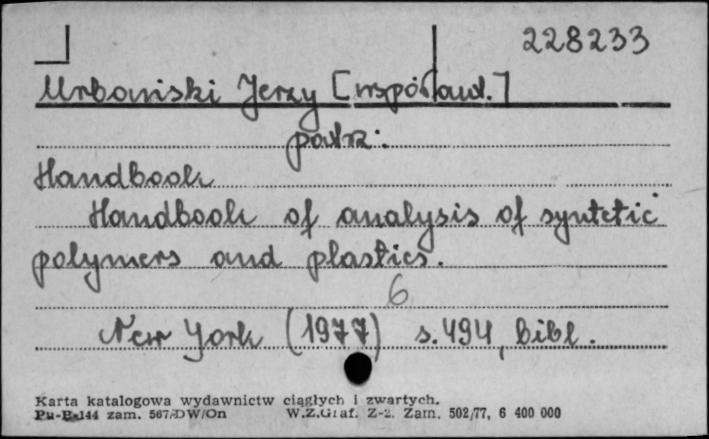 228233
Urbański Jerzy [współaut.]
patrz:
Handbook
Handbook of analysis of syntetic
polymers and plastics.
6
New York (1977) s. 494, bibl.
Karta katalogowa wydawnictw ciągłych i zwartych.
Pu-B-144 zam. 567/DW/On W.Z.Graf. Z-2. Zam. 502/77, 6 400 000